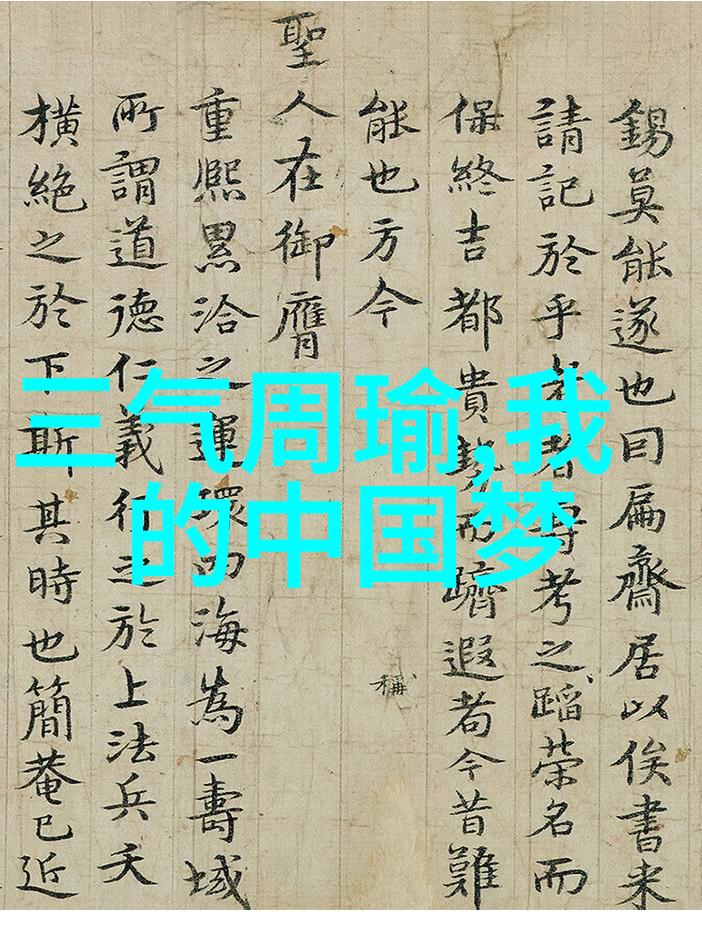 三气周瑜,我
的中国梦
錫莫能遂也曰扁齋居以俟書来
請記於乎者考之蹈荣名而
保終吉都貴勢而躋遐耇今昔難
能也方今
稱
聖人在御膺
重熙累洽之運環四海為一壽域
所謂道德仁義行之於上法兵夭
橫絶之於下斯其時也簡菴已近